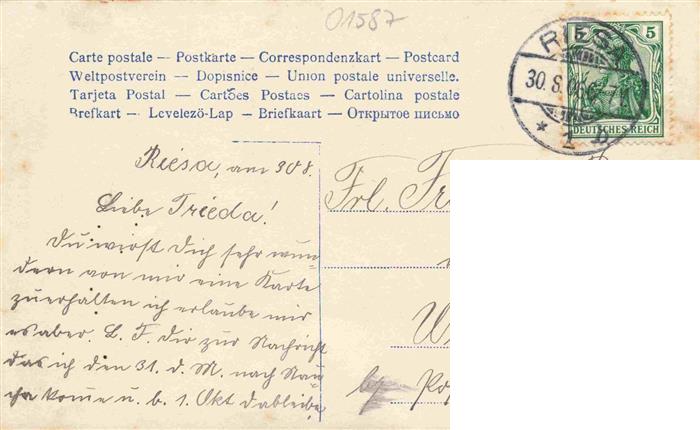 01587
Carte postale — Postkarte — Correspondenzkart — Postcard
Weltpostverein — Dopisnice — Union postale universelle.
Tarjeta Postal — Cartões Postaes — Cartolina postale
Brefkart — Levelező-Lap — Briefkaart — Открытое письмо
RIESA
30.8.
5 5
DEUTSCHES REICH
Riesa, am 30 8.
Liebe Frieda!
Du wirst Dich sehr wun-
dern von mir eine Karte
zu erhalten ich erlaube mir
es aber. L. F. dir zur Nachricht
das ich den 31. d. M. nach Rau-
cha kome u. b. 1 Okt dableibe
Frl. Fr